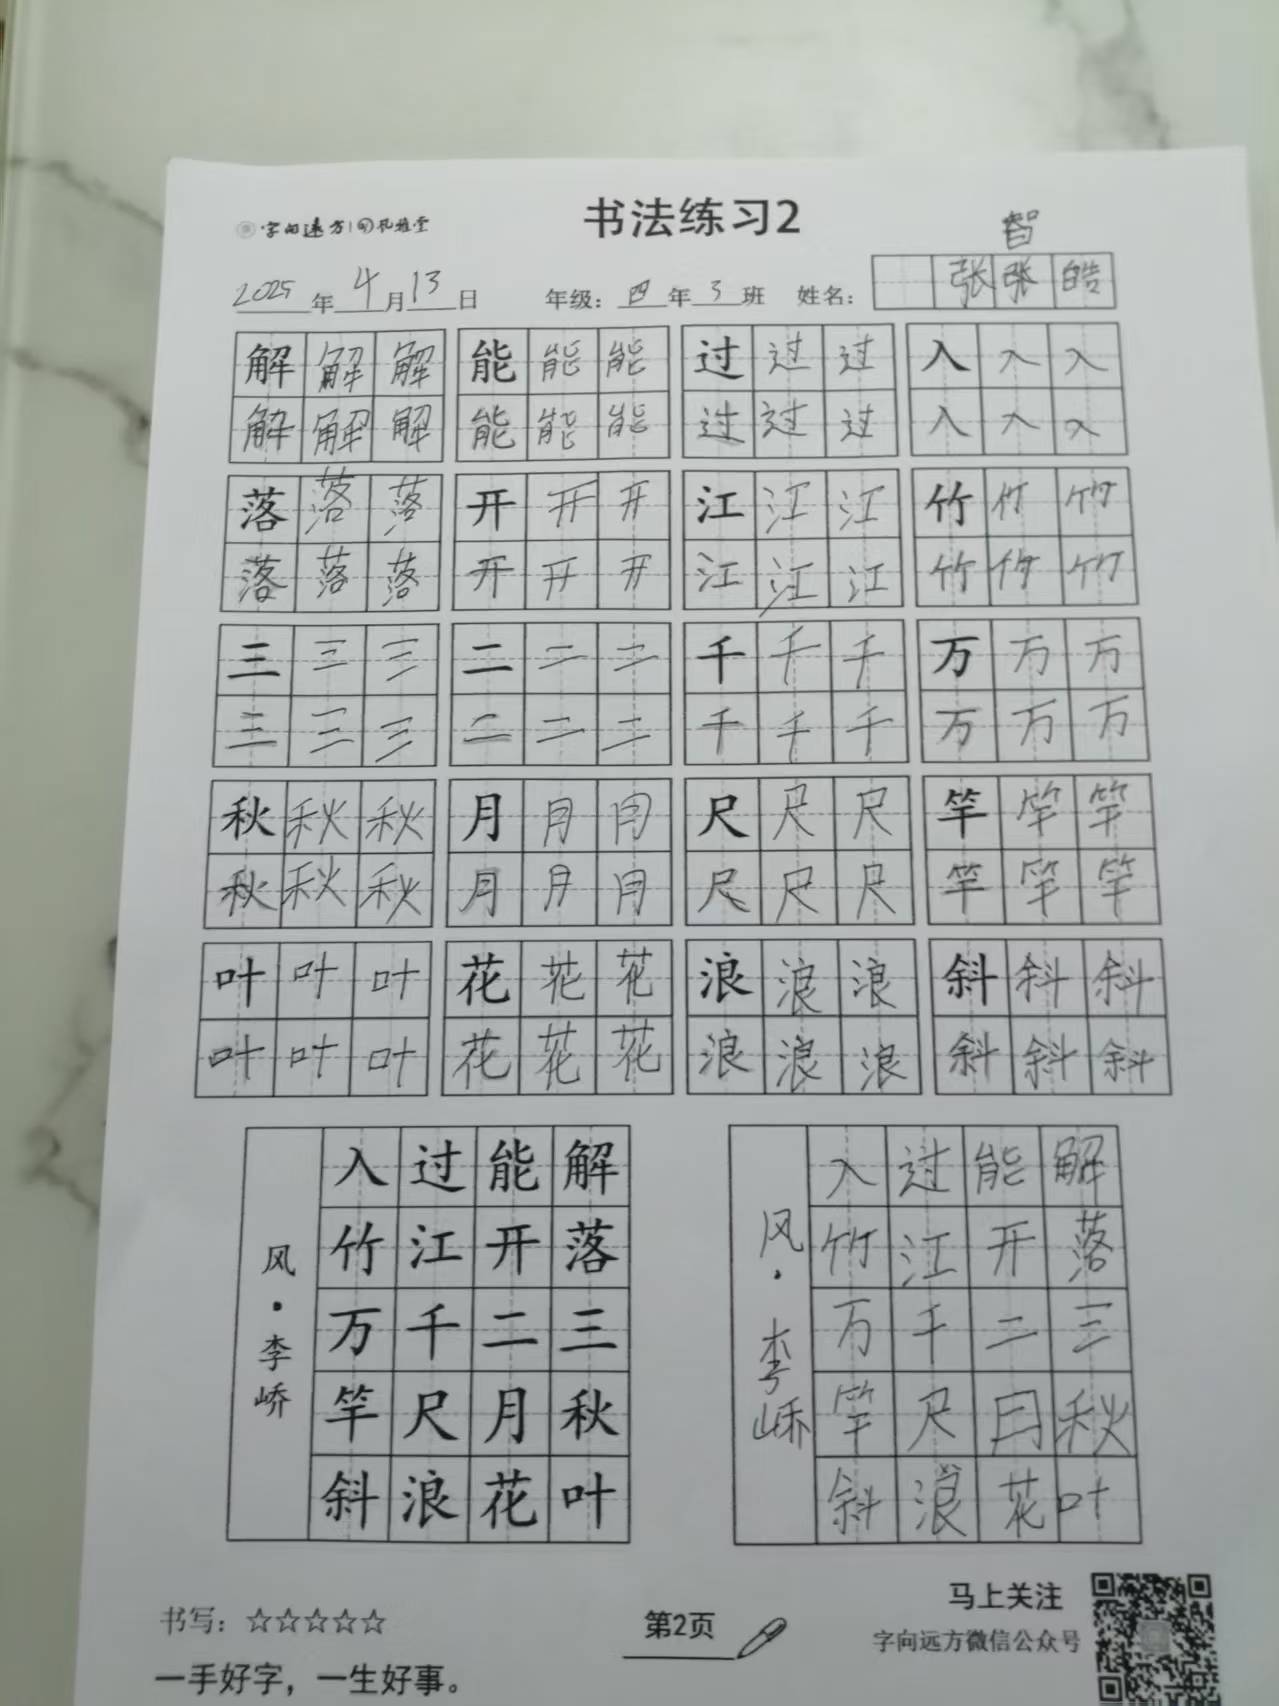 字向远方 孔雅堂
书法练习2
智
2025年4月13日 年级：四年3班 姓名： 张张皓
解解解 能能能 过过过 入入入
解解解 能能能 过过过 入入入
落落落 开开开 江江江 竹竹竹
落落落 开开开 江江江 竹竹竹
三三三 二二二 千千千 万万万
三三三 二二二 千千千 万万万
秋秋秋 月月月 尺尺尺 竿竿竿
秋秋秋 月月月 尺尺尺 竿竿竿
叶叶叶 花花花 浪浪浪 斜斜斜
叶叶叶 花花花 浪浪浪 斜斜斜
解落三秋叶
能开二月花
过江千尺浪
入竹万竿斜
风·李峤
解落三秋叶
能开二月花
过江千尺浪
入竹万竿斜
风·李峤
书写：☆☆☆☆☆
一手好字，一生好事。
第2页
马上关注
字向远方微信公众号